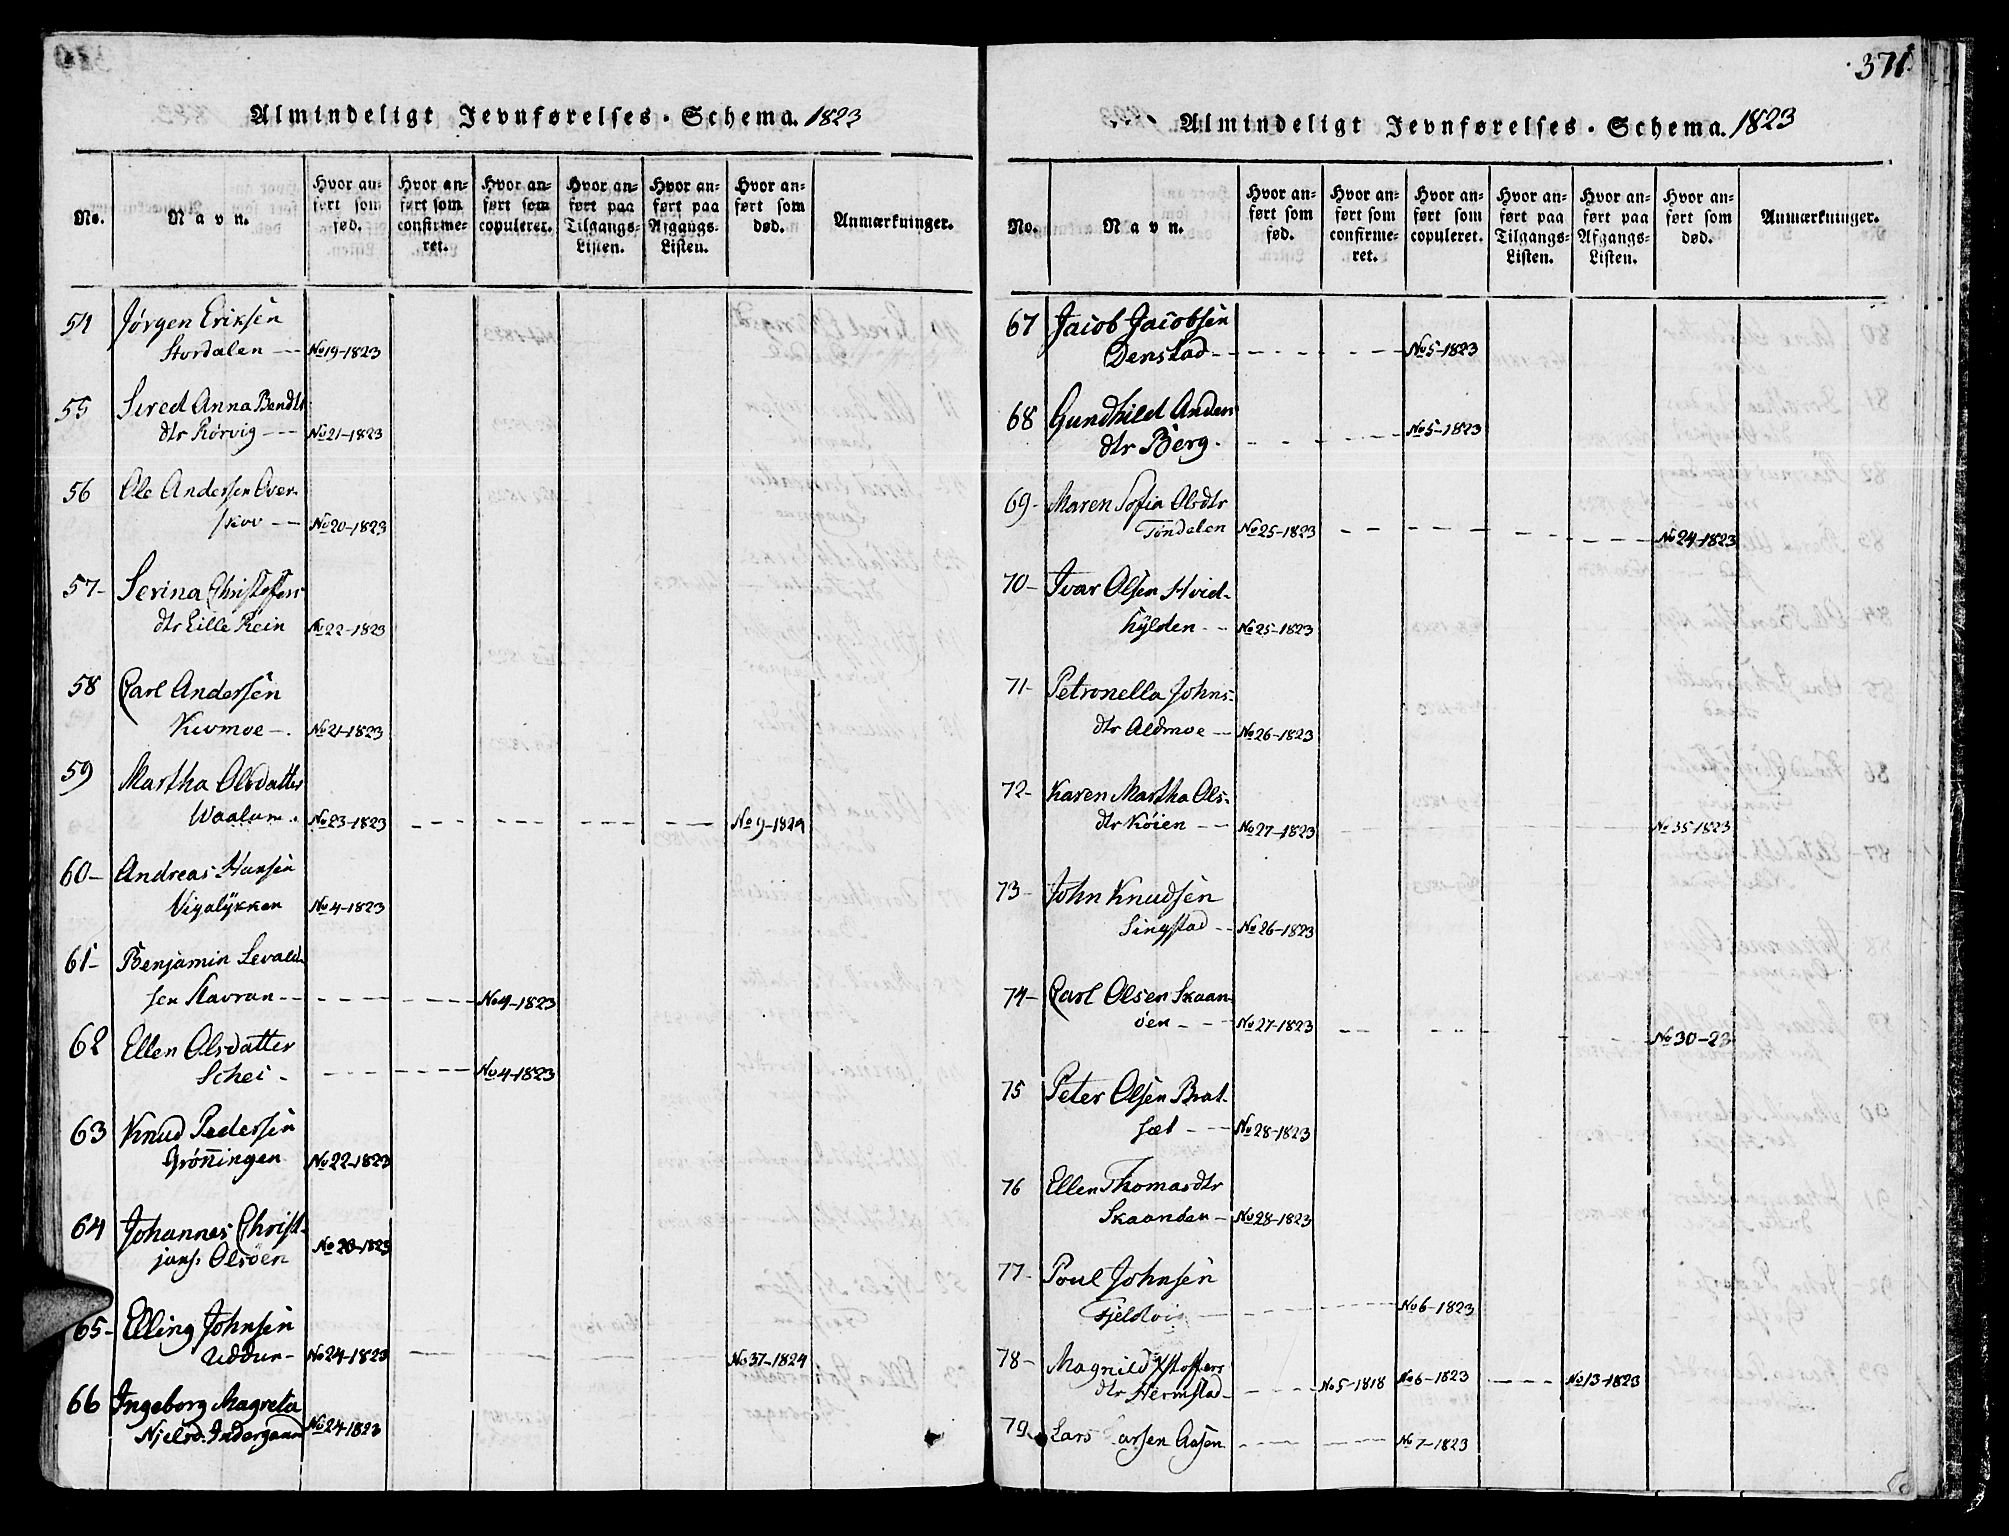 Almindeligt Jevnførelses-Schema. 1823
No.
Navn.
Hvor anført som fød.
Hvor anført som confirmeret.
Hvor anført som copuleret.
Hvor anført paa Tilgangs-Listen.
Hvor anført paa Afgangs-Listen.
Hvor anført som død.
Anmærkninger.
54 Jørgen Eriksen
Stordalen -- No 19-1823
55 Sered Anna Bendts
dtr Rørvig --- No 21-1823
56 Ole Andersen Over-
skov -- No 20-1823
57- Serina Christofers
dtr Lille Rein No 22-1823
58 Carl Andersen
Kvomoe -. No 21-1823
59 Martha Olsdatter
Waalum. No 23-1823 - - - - - No 9-1824
60- Andreas Hansen
Vigalÿkken No 4-1823
61- Benjamin Sevald-
sen Stavran -- - - - - No 4-1823
62 Ellen Olsdatter
Schei - - - - - No 4-1823
63 Knud Pedersen
Grønningen No 22-1823
64 Johannes Christ-
jans. Olsöen No 20-1823
65- Elling Johnsen
Uddun- No 24-1823 - - - - - No 37-1824
66 Ingeborg Magreta
Njelsd. Indergaard No 24-1823
371.
Almindeligt Jevnførelses-Schema. 1823
No.
Navn.
Hvor anført som fød.
Hvor anført som confirmeret.
Hvor anført som copuleret.
Hvor anført paa Tilgangs-Listen.
Hvor anført paa Afgangs-Listen.
Hvor anført som død.
Anmærkninger.
67 Jacob Jacobsen
Denstad - - - - - No 5-1823
68 Gundhild Anders
dtr Berg. - - - - No 5-1823
69- Maren Sofia Olsdtr
Tøndelen No 25-1823 - - - - - No 24-1823
70- Ivar Olsen Hvid-
hÿlden -- No 25-1823
71- Petronella Johns-
dtr Aldmoe -- No 26-1823
72- Karen Martha Ols-
dtr Køien -- No 27-1823 - - - - - No 35-1823
73- John Knudsen
Singstad -- No 26-1823
74- Carl Olsen Skaan-
öen --- No 27-1823 - - - - - No 30-23
75 Peter Olsen Brat-
sæt --- No 28-1823
76 Ellen Thomasdtr
Skaanden - No 28-1823
77- Poul Johnsen
- - - - - No 6-1823
78- Magnild Xstoffers
dtr Hermstad - - - - No 5-1818 No 6-1823 - - - No 13-1823
79. Lars arsen Aasen - - - - No 7-1823